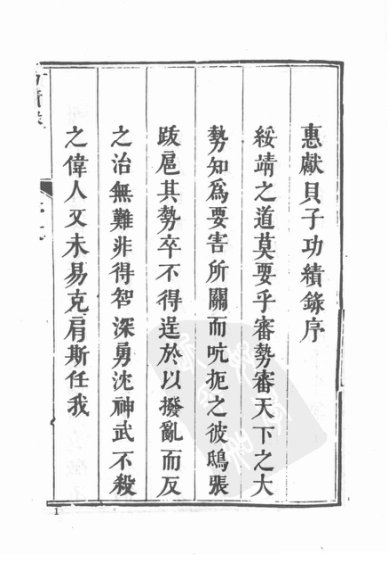 惠獻貝子功績錄序
綏靖之道莫要乎審勢審天下之大
勢知為要害所關而吭扼之彼鴟張
跋扈其勢卒不得逞於以撥亂而反
之治無難非得智深勇沈神武不殺
之偉人又未易克肩斯任我
1